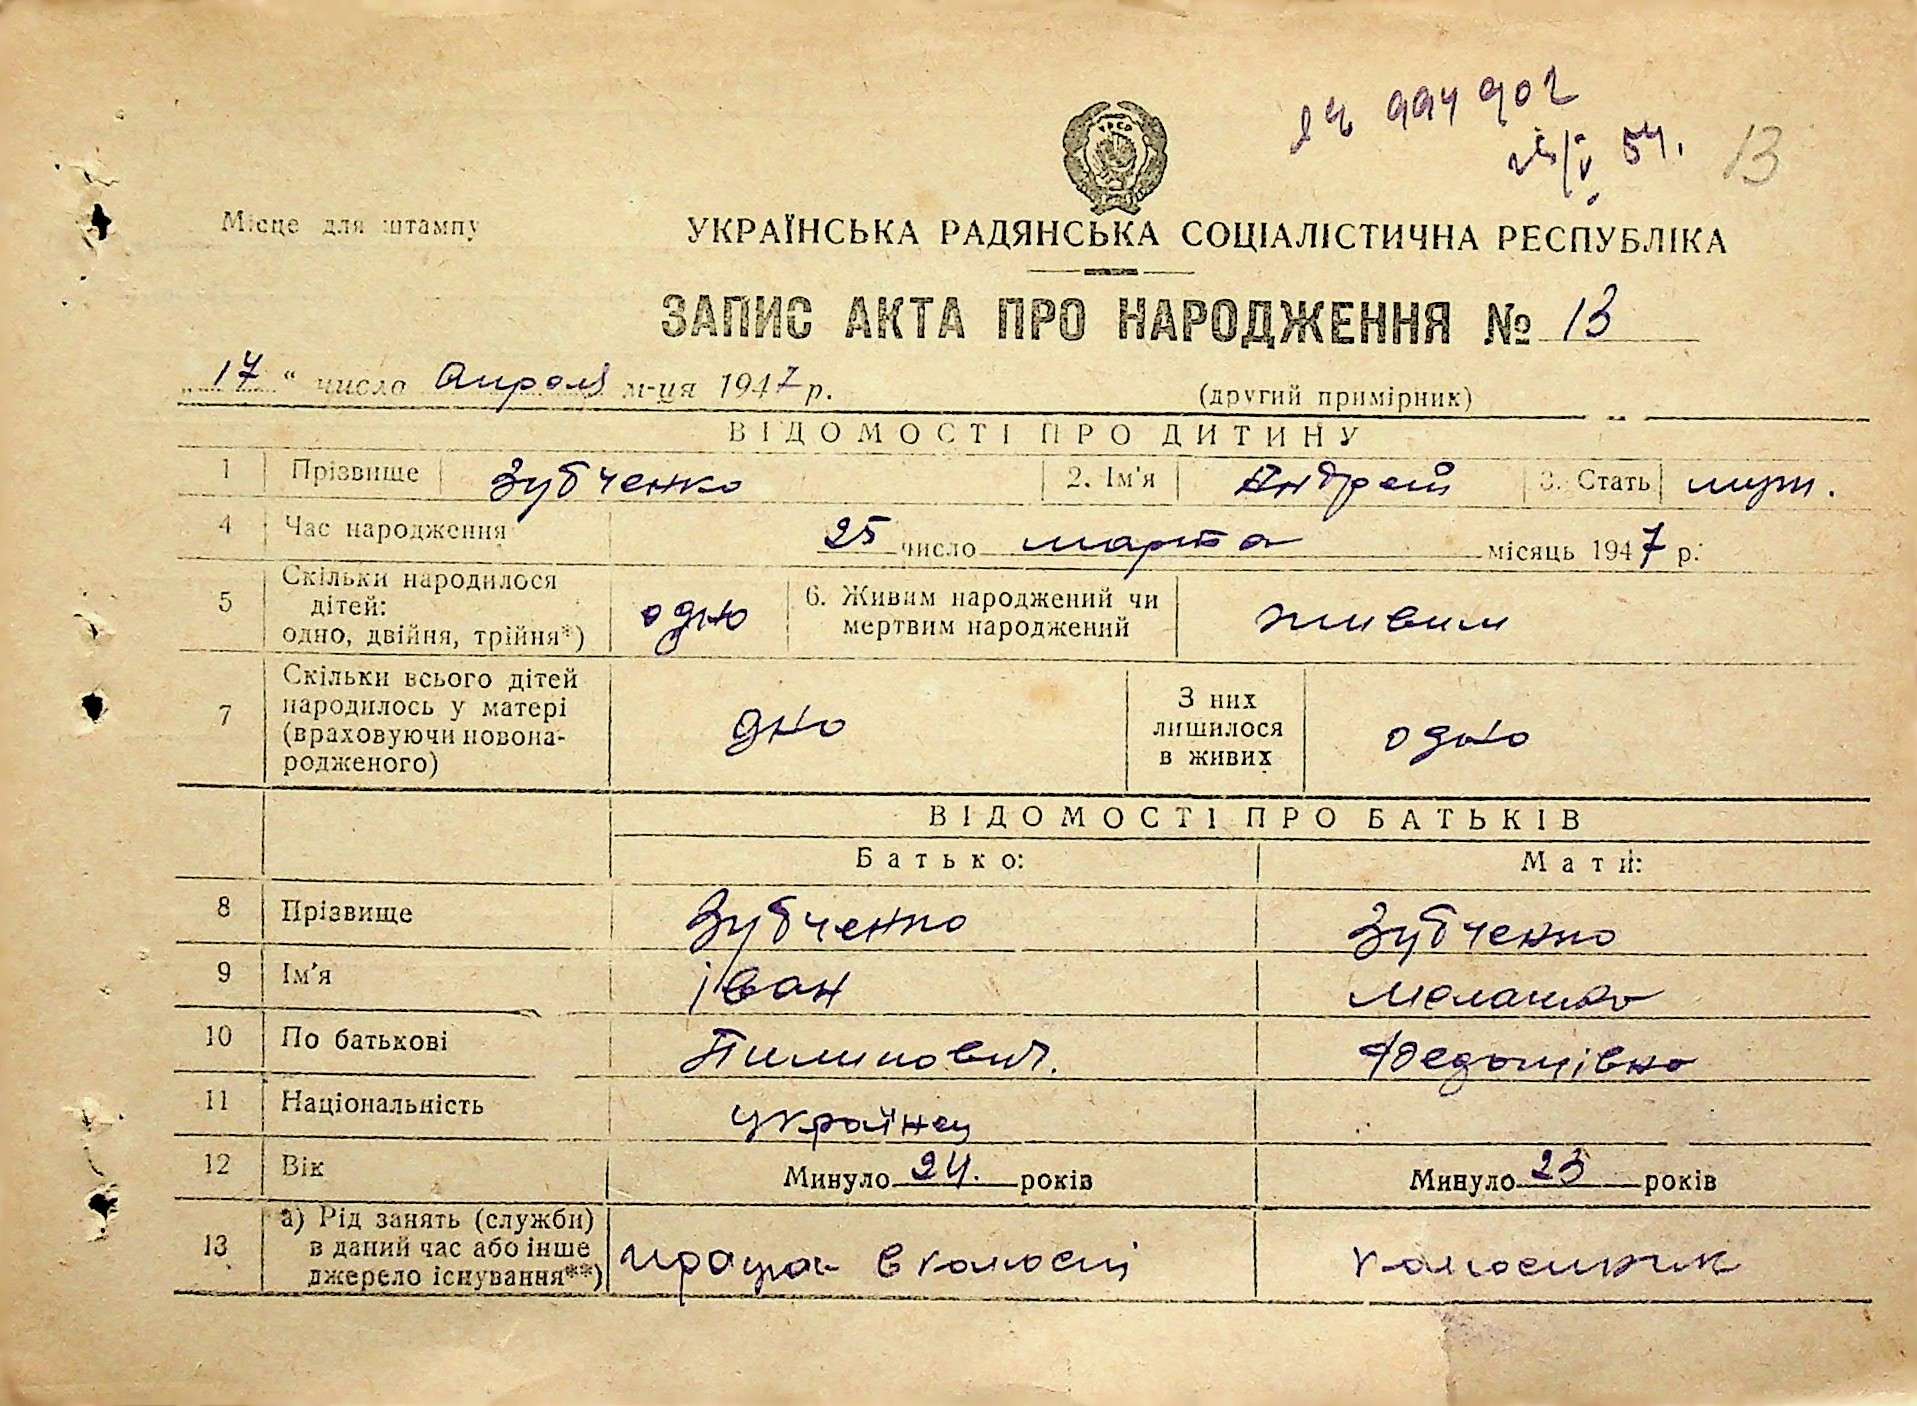 994902
54.
13
УРСР
Місце для штампу
УКРАЇНСЬКА РАДЯНСЬКА СОЦІАЛІСТИЧНА РЕСПУБЛІКА
ЗАПИС АКТА ПРО НАРОДЖЕННЯ № 13
„17“ число Апреля м-ця 1947 р.
(другий примірник)
ВІДОМОСТІ ПРО ДИТИНУ
1 Прізвище Зубченко 2. Ім'я Андрей 3. Стать муж.
4 Час народження 25 число марта місяць 1947 р.
5 Скільки народилося дітей: одно, двійня, трійня*) одно 6. Живим народжений чи мертвим народжений живим
7 Скільки всього дітей народилось у матері (враховуючи новонародженого) дно З них лишилося в живих одно
ВІДОМОСТІ ПРО БАТЬКІВ
Батько: Мати:
8 Прізвище Зубченко Зубченко
9 Ім'я Іван Меланка
10 По батькові Пилипович. Федотівна
11 Національність українец
12 Вік Минуло 24. років Минуло 23 років
13 а) Рід занять (служби) в даний час або інше джерело існування**) в колгоспі колгоспник